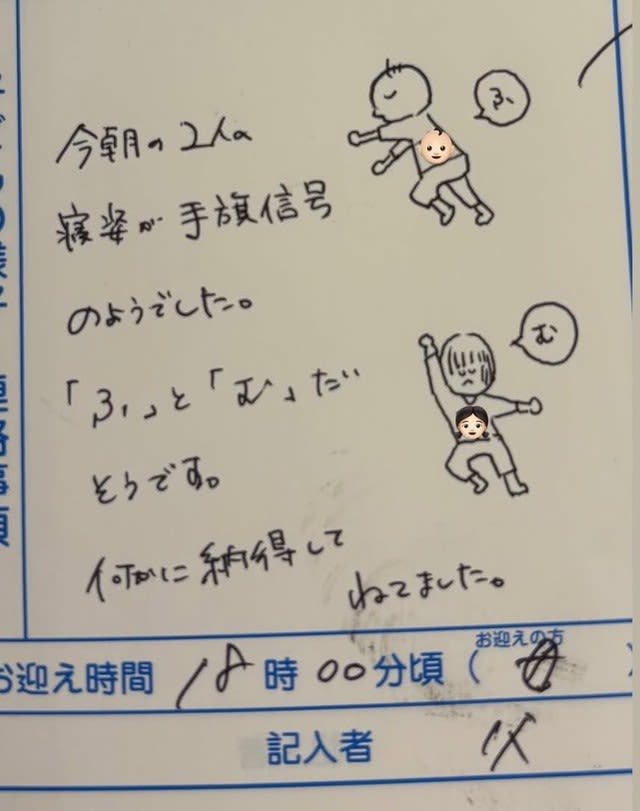 今朝の2人の
寝姿が手旗信号
のようでした。
「ふ」と「む」だ
そうです。
何かに納得して
ねてました。
ふ
む
お迎え時間 18時00分頃(
お迎えの方
母
記入者 父